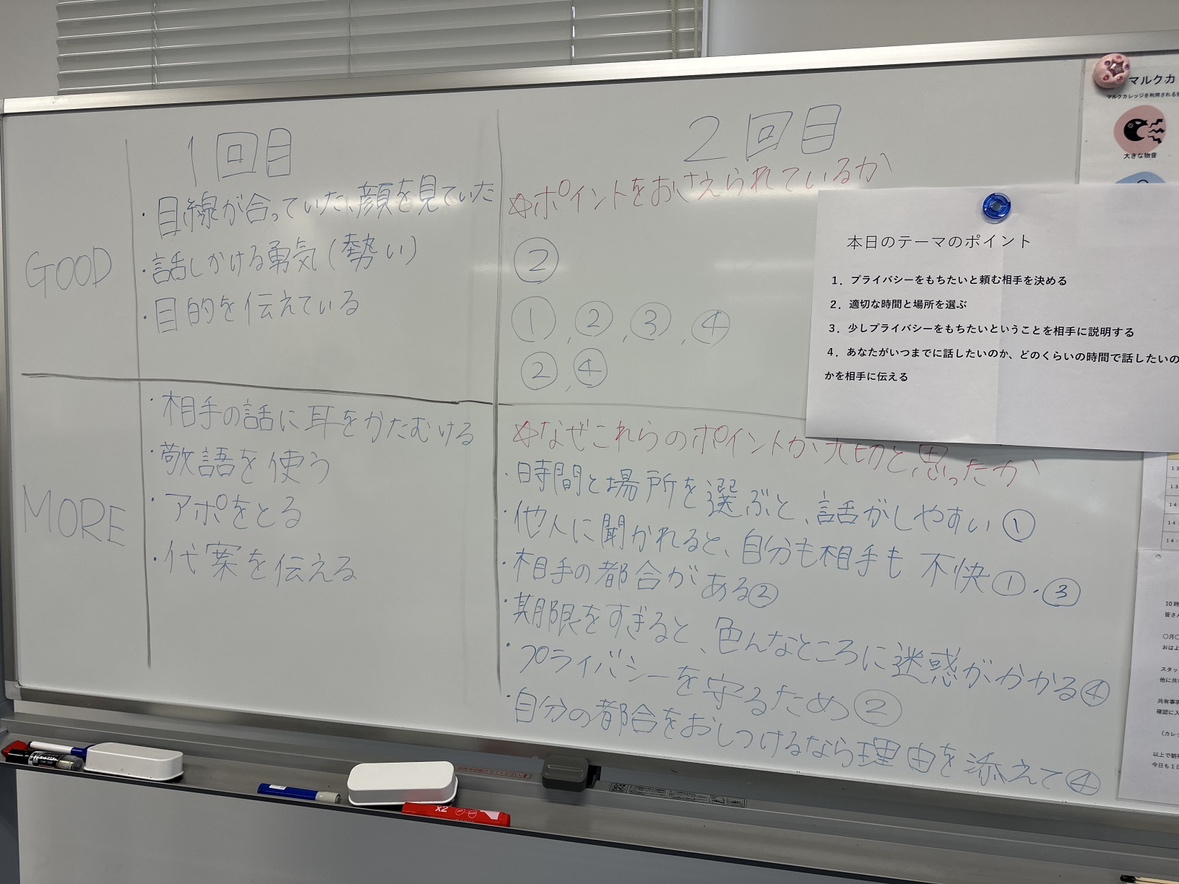 1回目
GOOD
・目線が合っていた、顔を見ていた
・話しかける勇気(勢い)
・目的を伝えている
MORE
・相手の話に耳をかたむける
・敬語を使う
・アポをとる
・代案を伝える
2回目
☆ポイントをおさえられているか
②
①,②,③,④
②,④
☆なぜこれらのポイントが大切と思ったか
・時間と場所を選ぶと、話がしやすい①
・他人に聞かれると、自分も相手も不快①・③
・相手の都合がある②
・期限をすぎると、色んなところに迷惑がかかる④
・プライバシーを守るため②
・自分の都合をおしつけるなら理由を添えて④
本日のテーマのポイント
1.プライバシーをもちたいと頼む相手を決める
2.適切な時間と場所を選ぶ
3.少しプライバシーをもちたいということを相手に説明する
4.あなたがいつまでに話したいのか、どのくらいの時間で話したいの
かを相手に伝える
マルクカ
マルクカレッジを利用される
大きな物音
10時
皆さん
〇月〇
おは
スタッ
他に共
共有事
確認に入
(カレッ
以上で朝
今日も1
X2